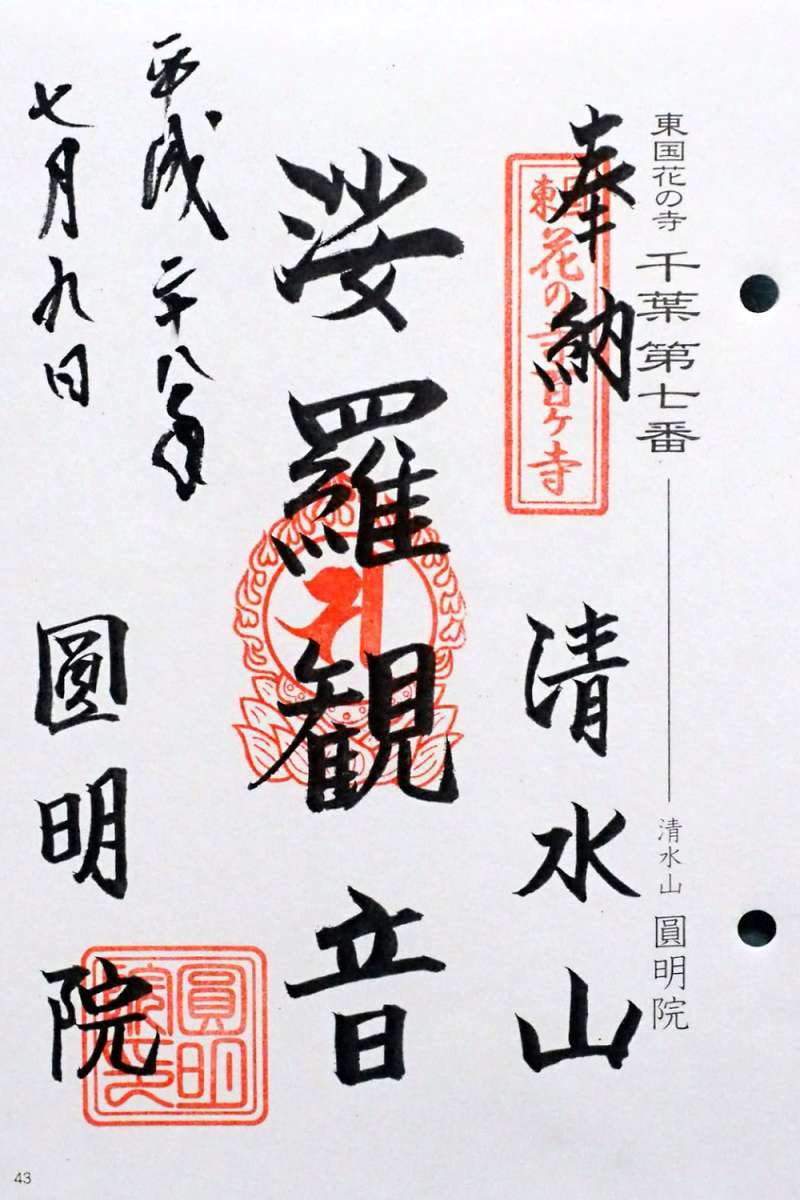 東国花の寺 千葉第七番 清水山 圓明院
奉納
東国花の寺百ヶ寺
清水山
娑羅観音
平成二十八年
七月九日
圓明院
圓明院印
43